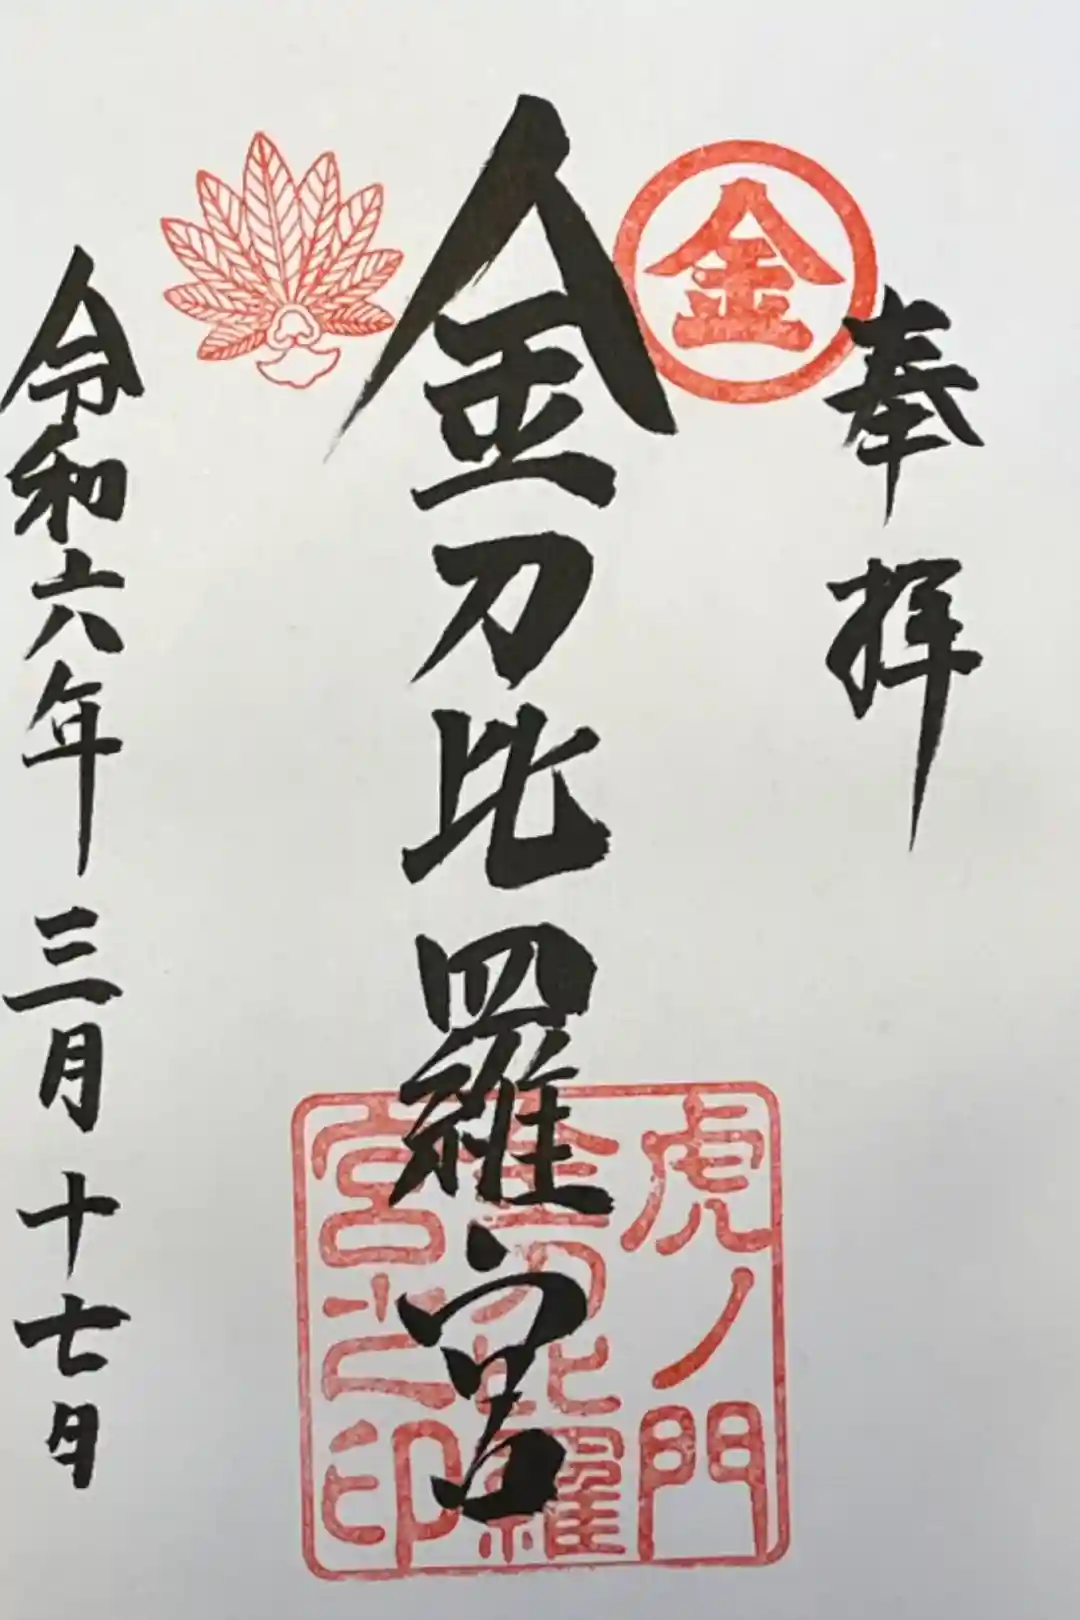 奉拝
金
金刀比羅宮
虎ノ門
金刀比羅
宮之印
令和六年三月十七日